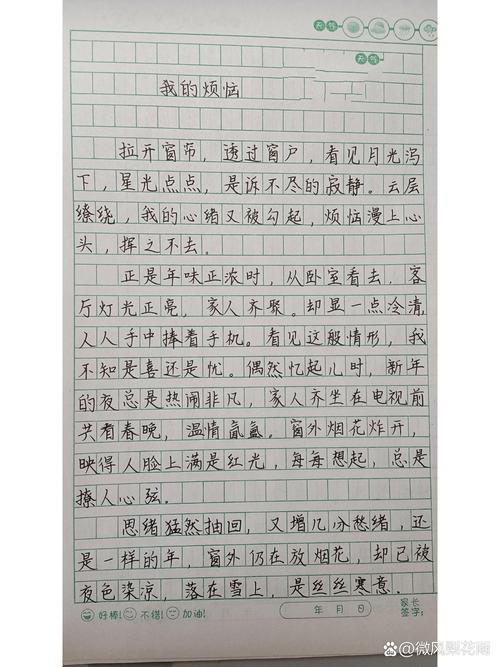 天气
天气
我的烦恼
拉开窗帘，透过窗户，看见月光泻
下，星光点点，是诉不尽的寂静。云层
缭绕，我的心绪又被勾起，烦恼漫上心
头，挥之不去。
正是年味正浓时，从卧室看去，客
厅灯光正亮，家人齐聚。却显一点冷清，
人人手中捧着手机。看见这般情形，我
不知是喜还是忧。偶然忆起儿时，新年
的夜总是热闹非凡，家人齐坐在电视前
共看春晚，温情氤氲。窗外烟花炸开，
映得人脸上满是红光，每每想起，总是
撩人心弦。
思绪猛然抽回，又增几分愁绪，还
是一样的年，窗外仍在放烟花，却已被
夜色染凉，落在雪上，是丝丝寒意。
好棒！ 不错！ 加油！ 年 月 日 家长
签字：
@微风梨花雨